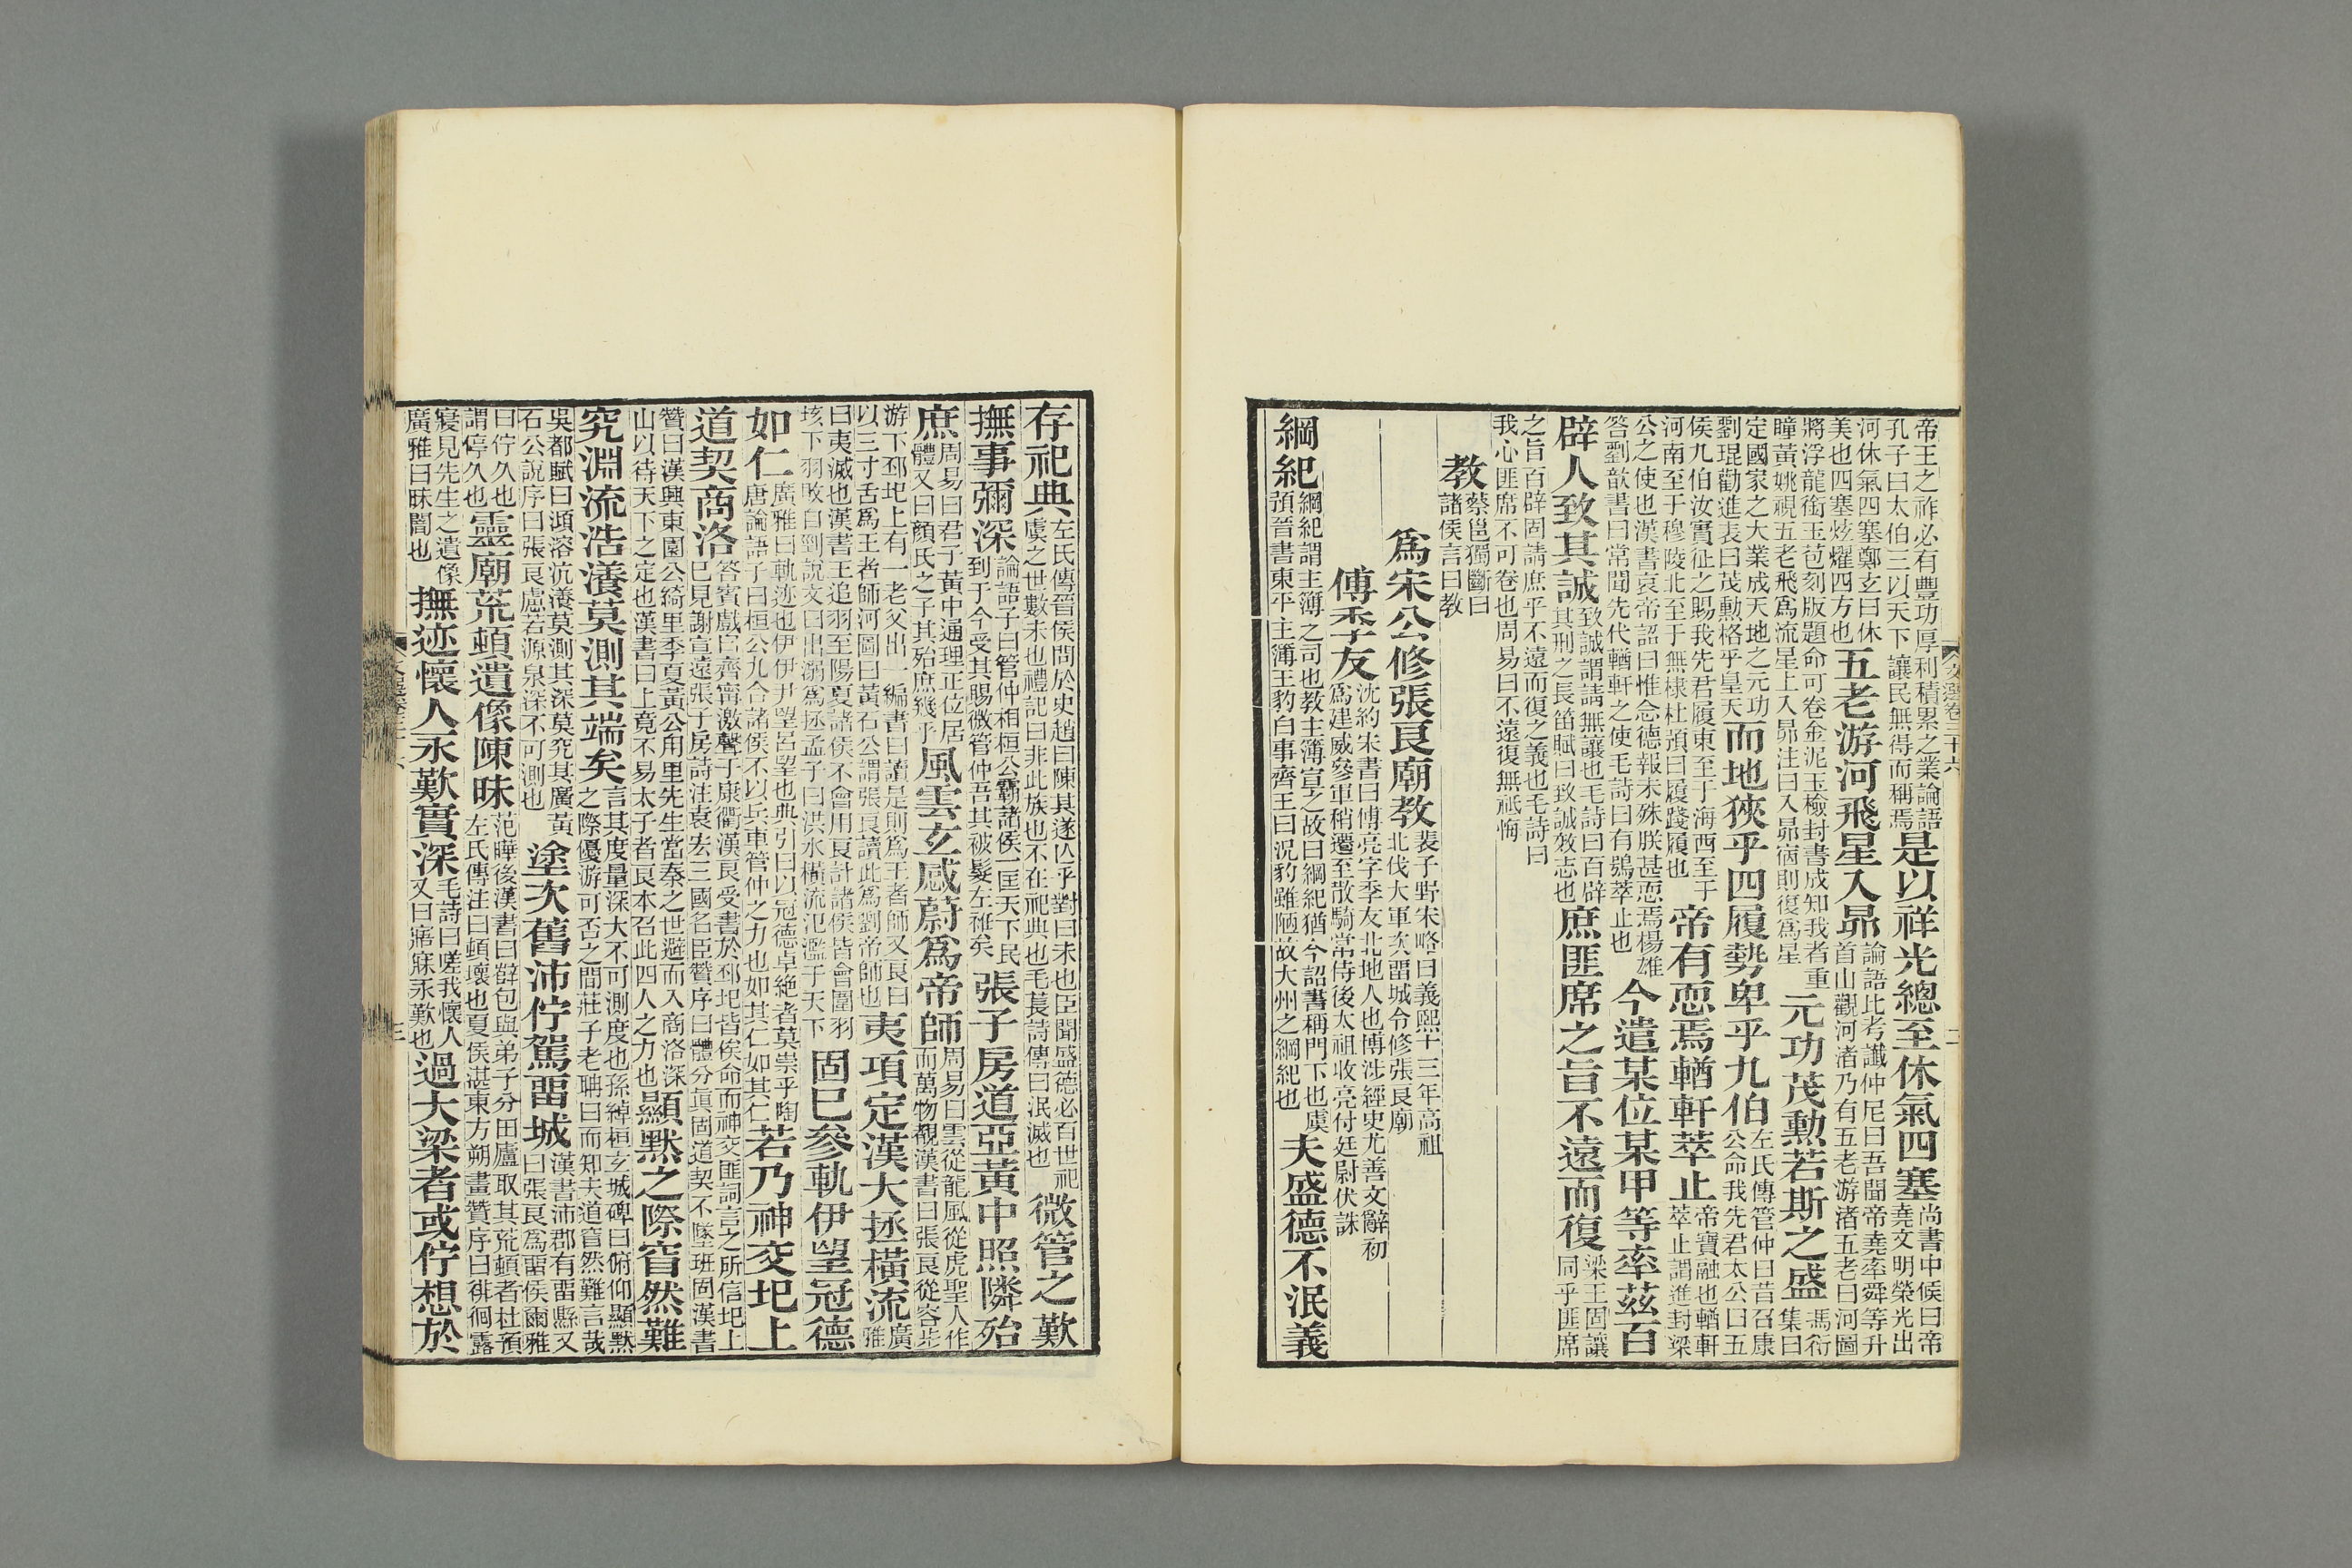 帝王之祚必有豐功厚利積累之業論語孔子曰太伯三以天下讓民無得而稱焉是以祥光總至休氣四塞尚書中候曰帝堯文明榮光出
河休氣四塞鄭玄曰休美也四塞炫燿四方也五老游河飛星入昴論語比考讖仲尼曰吾聞帝堯率舜等升首山觀河渚乃有五老游渚五老曰河圖
將浮龍銜玉苞刻版題命可卷金泥玉檢封書成知我者重瞳黃姚視五老飛爲流星上入昴注曰入昴宿則復爲星元功茂勳若斯之盛馮衍集曰
定國家之大業成天地之元功劉琨勸進表曰茂勳格乎皇天而地狹乎四履勢卑乎九伯左氏傳管仲曰昔召康公命我先君太公曰五
侯九伯汝實征之賜我先君履東至于海西至于河南至于穆陵北至于無棣杜預曰履踐履也帝有恧焉輶軒萃止帝寶融也輶軒萃止謂進封梁
公之使也漢書哀帝詔曰惟念德報未殊朕甚恧焉楊雄答劉歆書曰常聞先代輶軒之使毛詩曰有鴞萃止也今遣某位某甲等率茲百
辟人致其誠致誠謂請無讓也毛詩曰百辟其刑之長笛賦曰致誠效志也庶匪席之旨不遠而復梁王固讓同乎匪席
之旨百辟固請庶乎不遠而復之義也毛詩曰我心匪席不可卷也周易曰不遠復無祇悔
教蔡邕獨斷曰諸侯言曰教
爲宋公修張良廟教裴子野宋略曰義熙十三年高祖北伐大軍次畱城令修張良廟
傅季友沈約宋書曰傅亮字季友北地人也博涉經史尤善文辭初爲建威參軍稍遷至散騎常侍後太祖收亮付廷尉伏誅
綱紀綱紀謂主簿之司也教主簿宣之故曰綱紀猶今詔書稱門下也虞預晉書東平主簿王豹白事齊王曰況豹雖陋故大州之綱紀也夫盛德不泯義
存祀典左氏傳晉侯問於史趙曰陳其遂亡乎對曰未也臣聞盛德必百世祀虞之世數未也禮記曰非此族也不在祀典也毛萇詩傳曰泯滅也微管之歎
撫事彌深論語子曰管仲相桓公霸諸侯一匡天下民到于今受其賜微管仲吾其被髮左衽矣張子房道亞黃中照隣殆
庶周易曰君子黃中通理正位居體又曰顏氏之子其殆庶幾乎風雲玄感蔚爲帝師周易曰雲從龍風從虎聖人作而萬物覩漢書曰張良從容步
游下邳圯上有一老父出一編書曰讀是則爲王者師又良曰以三寸舌爲王者師河圖曰黃石公謂張良讀此爲劉帝師也夷項定漢大拯橫流廣雅
曰夷滅也漢書王追羽至陽夏諸侯不會用良計諸侯皆會圍羽垓下羽敗自剄說文曰出溺爲拯孟子曰洪水橫流氾濫于天下固已參軌伊望冠德
如仁廣雅曰軌迹也伊伊尹望呂望也典引曰以冠德卓絶者莫崇乎陶唐論語子曰桓公九合諸侯不以兵車管仲之力也如其仁如其仁若乃神交圯上
道契商洛答賓戲曰齊甯激聲于康衢漢良受書於邳圯皆俟命而神交匪詞言之所信圯上已見謝宣遠張子房詩注袁宏三國名臣贊序曰體分冥固道契不墜班固漢書
贊曰漢興東園公綺里季夏黃公甪里先生當秦之世避而入商洛深山以待天下之定也漢書曰上竟不易太子者良本召此四人之力也顯默之際窅然難
究淵流浩瀁莫測其端矣言其度量深大不可測度也孫綽桓玄城碑曰俯仰顯默之際優游可否之間莊子老聃曰而知夫道窅然難言哉
吳都賦曰澒溶沆瀁莫測其深莫究其廣黃石公說序曰張良慮若源泉深不可測也塗次舊沛佇駕畱城漢書沛郡有畱縣又曰張良爲畱侯爾雅
曰佇久也謂停久也靈廟荒頓遺像陳昧范曄後漢書曰薛包與弟子分田廬取其荒頓者杜預左氏傳注曰頓壞也夏侯湛東方朔畫贊序曰徘徊露
寢見先生之遺像廣雅曰昧闇也撫迹懷人永歎實深毛詩曰嗟我懷人又曰寤寐永歎也過大梁者或佇想於